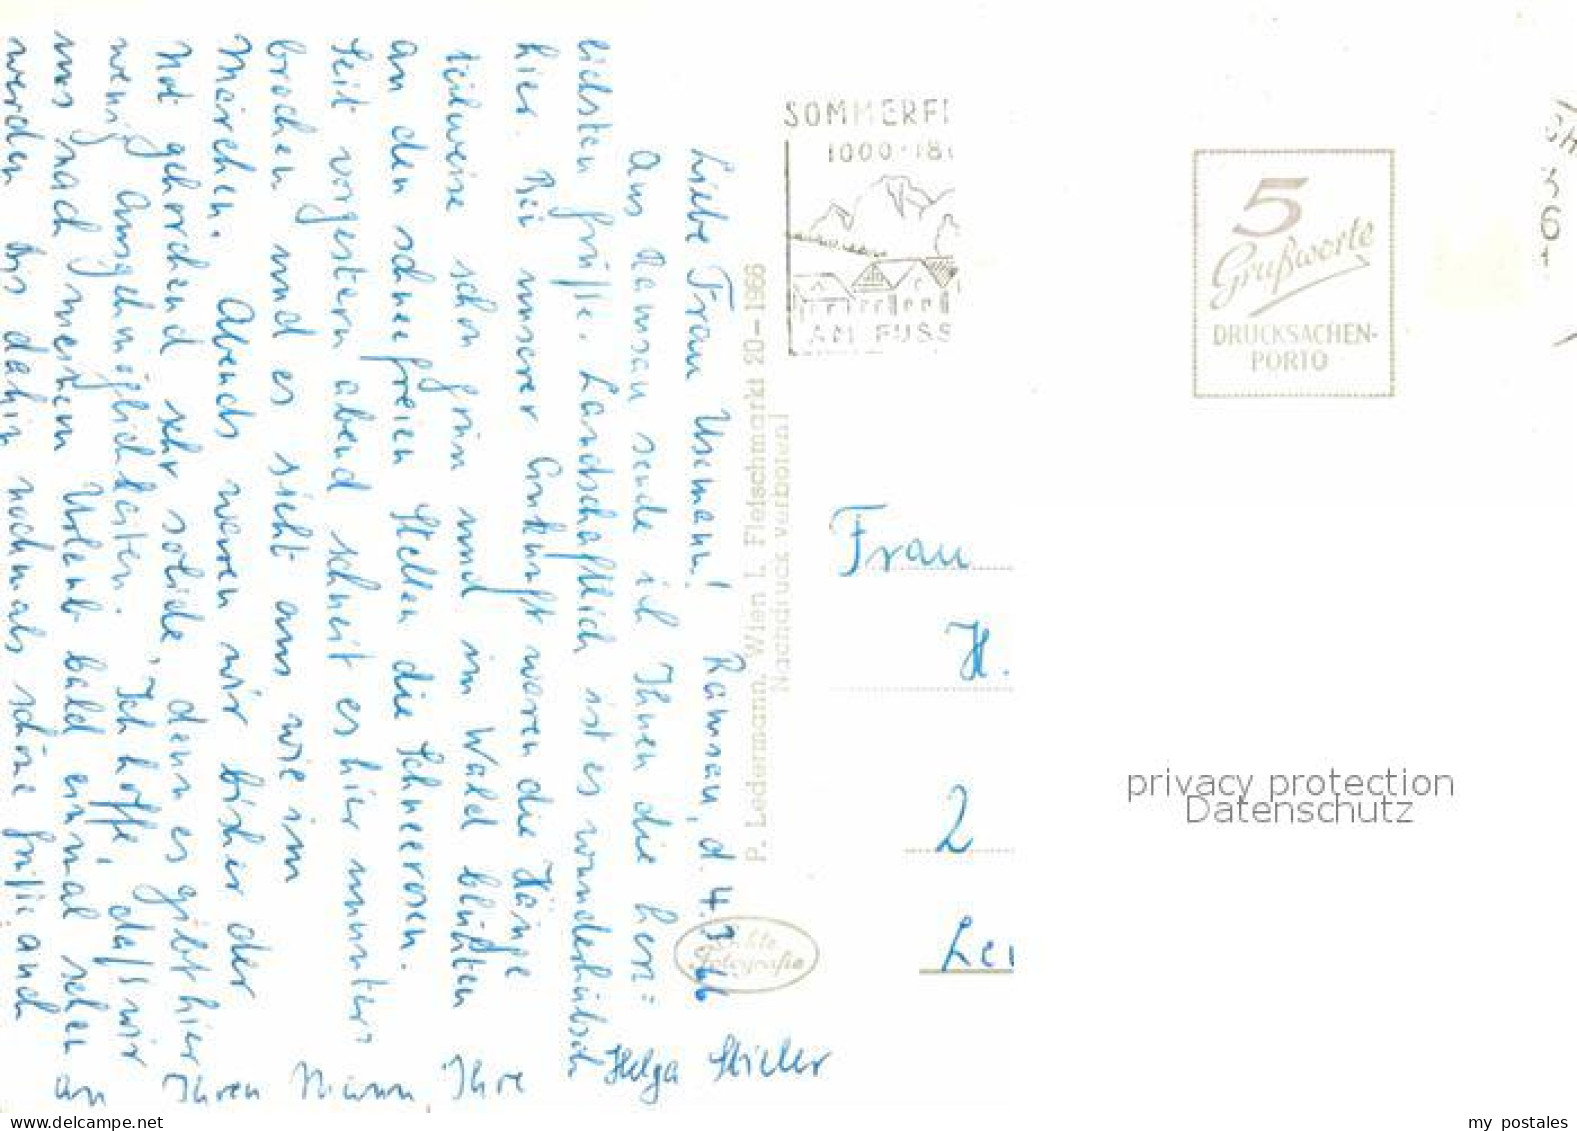 Liebe Frau Usemann! Ramsau, d. 4.3.66
Aus Ramsau sende ich Ihnen die herz=
lichsten Grüße. Landschaftlich ist es wunderhübsch
hier. Bei unserer Ankunft waren die Hänge
teilweise schon grün und im Wald blühten
an den schneefreien Stellen die Schneerosen.
Seit vorgestern abend schneit es hier ununter=
brochen und es sieht aus wie im
Märchen. Abends waren wir bisher der
Not gehorchend sehr solide, denn es gibt hier
wenig Ausgehmöglichkeiten. Ich hoffe, daß wir
uns nach meinem Urlaub bald einmal sehen
werden. Bis dahin nochmals schöne Grüße auch
an Ihren Mann Ihre Helga Stieler
P. Ledermann, Wien I, Fleischmarkt 20–1966
Nachdruck verboten!
Echte
Fotografie
SOMMERFR
1000-180
AM FUSS
5
Grußworte
DRUCKSACHEN-
PORTO
Frau
H.
2
Lei
privacy protection
Datenschutz
my postales